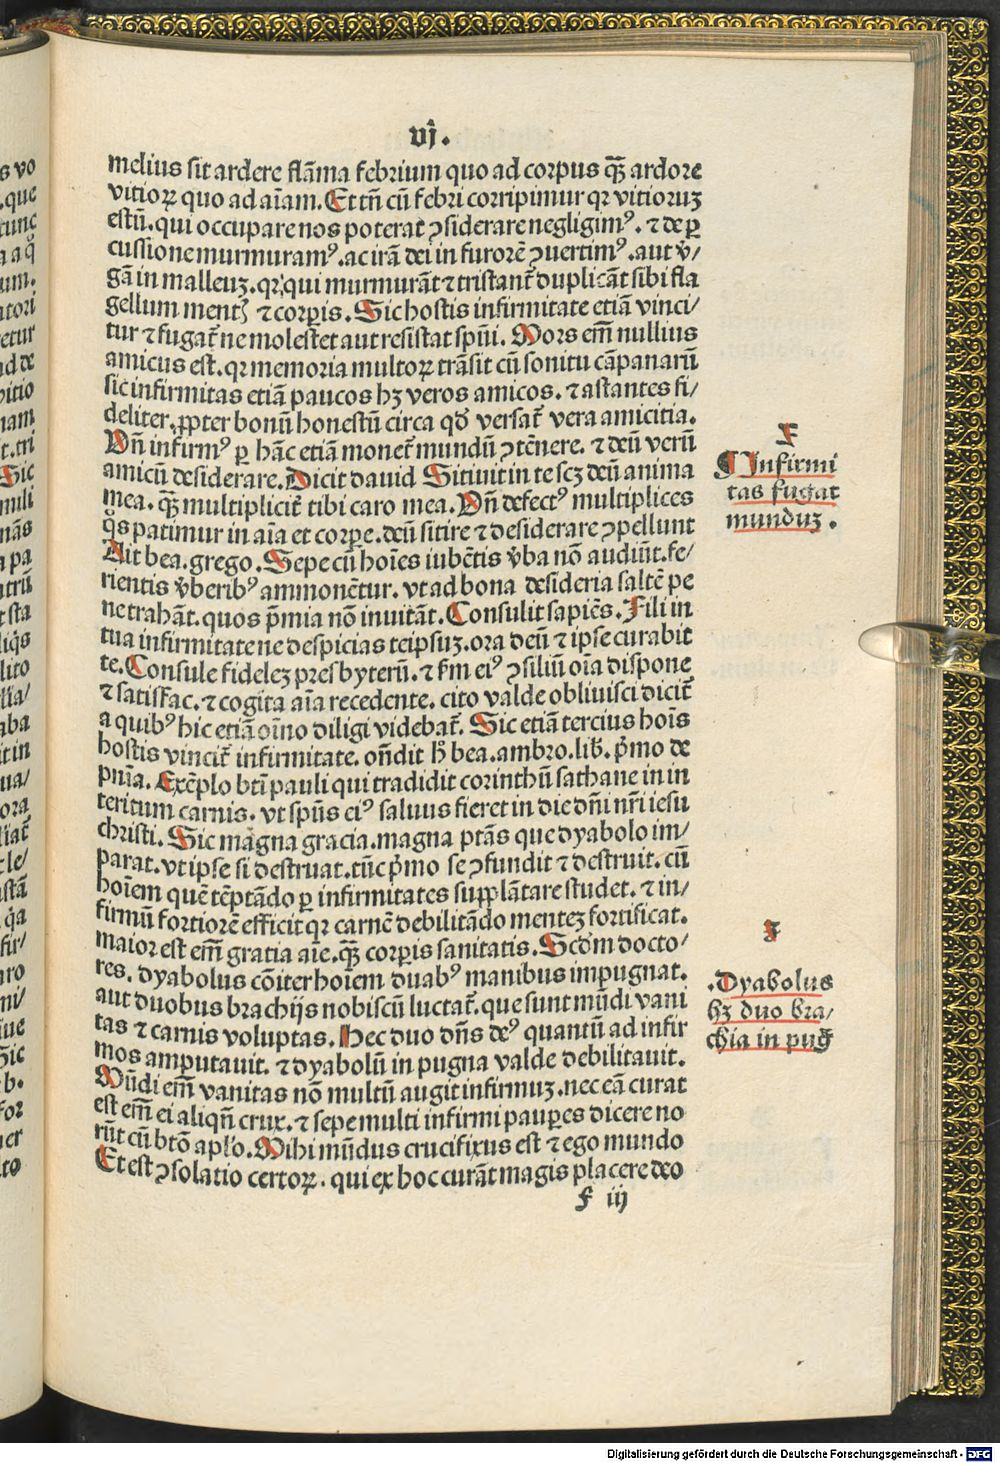 vj.
melius sit ardere flāma febrium quo ad corpus qȝ̄ ardore
vitioꝝ quo ad aīam. Et tn̄ cū febri corripimur qr vitioruꝫ
estū. qui occupare nos poterat ꝯsiderare negligimꝰ. ⁊ de ꝑ
cussione murmuramꝰ. ac irā dei in furorē ꝯuertimꝰ. aut v̓/
gā in malleuꝫ. qr̓ qui murmurāt ⁊ tristant̄ duplicāt sibi fla
gellum mentꝭ ⁊ corꝑis. Sic hostis infirmitate etiā vinci/
tur ⁊ fugat̄ ne molestet aut resistat spūi. Mors em̄ nullius
amicus est. qr memoria multoꝝ trāsit cū sonitu cāpanarū
sic infirmitas etiā paucos hꝫ veros amicos. ⁊ astantes fi/
deliter, ꝓpter bonū honestū circa qd̄ versat̄ vera amicitia.
Vn̄ infirmꝰ ꝑ hāc etiā monet̄ mundū ꝯtēnere. ⁊ deū verū
amicū desiderare. Dicit dauid Sitiuit in te scꝫ deū anima
mea. qȝ̄ multiplicit̄ tibi caro mea. Vn̄ defectꝰ multiplices
q̊s patimur in aīa et corꝑe. deū sitire ⁊ desiderare ꝯpellunt
Ait bea. grego. Sepe cū hoīes iubētis v̓ba nō audiūt. fe/
rientis v̓beribꝰ ammonētur. vt ad bona desideria saltē pe
ne trahāt. quos p̄mia nō inuitāt. Consulit sapiēs. Fili in
tua infirmitate ne despicias teipsuꝫ. ora deū ⁊ ipse curabit
te. Consule fideleꝫ presbyterū. ⁊ ẜm eiꝰ ꝯsiliū oīa dispone
⁊ satisfac. ⁊ cogita aīa recedente. cito valde obliuisci dicit̄
a quibꝰ hic etiā oīno diligi videbat̄. Sic etiā tercius hoīs
hostis vincit̄ infirmitate. on̄dit ħ bea. ambro. lib̓. p̓mo de
pnīa. Exēplo bt̄i pauli qui tradidit corinthū sathane in in
teritum carnis. vt spūs eiꝰ saluus fieret in die dn̄i nr̄i iesu
christi. Sic magna gracia. magna ptās que dyabolo im/
parat. vt ipse si destruat. tūc p̓mo se ꝯfundit ⁊ destruit. cū
hoīem quē tēptādo ꝑ infirmitates supplātare studet. ⁊ in/
firmū fortiorē efficit qr carnē debilitādo menteꝫ fortificat.
maior est em̄ gratia aīe. qȝ̄ corꝑis sanitatis. Scd̄m docto/
res. dyabolus cōiter hoīem duabꝰ manibus impugnat.
aut duobus brachijs nobiscū luctat̄. que sunt mūdi vani
tas ⁊ carnis voluptas. Hec duo dn̄s deꝰ quantū ad infir
mos amputauit. ⁊ dyabolū in pugna valde debilitauit.
Mūdi em̄ vanitas nō multū augit infirmuꝫ. nec eā curat
est em̄ ei aliqn̄ crux. ⁊ sepe multi infirmi pauꝑes dicere no
rūt cū bt̄o apl̓o. Mihi mūdus crucifixus est ⁊ ego mundo
Et est ꝯsolatio certoꝝ. qui ex hoc curāt magis placere deo
f iij
F
¶ Infirmi
tas fugat
munduꝫ.
.Dyabolus
hꝫ duo bra/
chia in puḡ